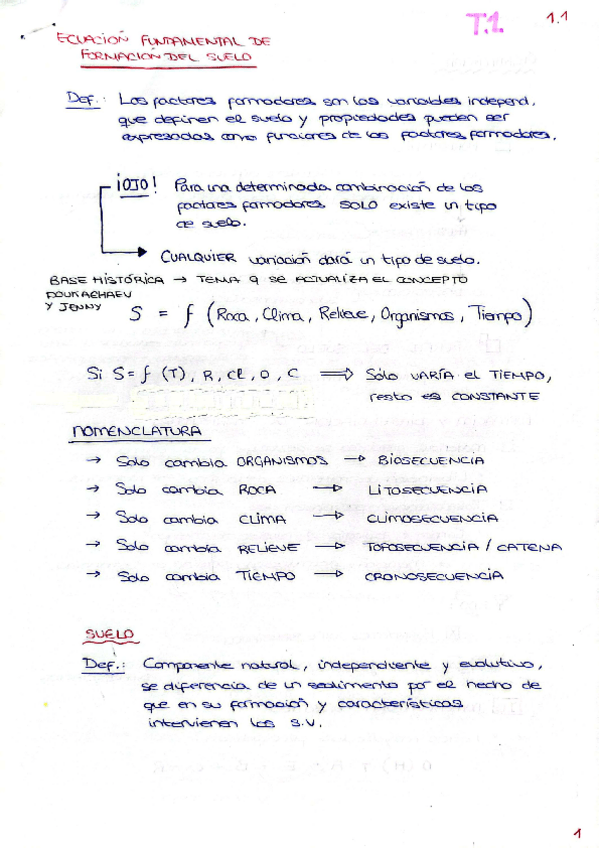 T.1.
1.1
ECUACIÓN FUNDAMENTAL DE
FORMACIÓN DEL SUELO
Def.: Los factores formadores son las variables independ.
que definen el suelo y propiedades pueden ser
expresadas como funciones de los factores formadores.
¡OJO! Para una determinada combinación de los
factores formadores SOLO existe un tipo
de suelo.
CUALQUIER variación dará un tipo de suelo.
BASE HISTÓRICA → TEMA 9 SE ACTUALIZA EL CONCEPTO
DOUKACHAEV
Y JENNY
S = f (Roca, Clima, Relieve, Organismos, Tiempo)
Si S = f (T), R, CL, O, C ⟹ Sólo VARÍA el TIEMPO,
resto es CONSTANTE
NOMENCLATURA
→ Solo cambia ORGANISMOS → BIOSECUENCIA
→ Solo cambia ROCA → LITOSECUENCIA
→ Solo cambia CLIMA → CLIMOSECUENCIA
→ Solo cambia RELIEVE → TOPOSECUENCIA / CATENA
→ Solo cambia TIEMPO → CRONOSECUENCIA
SUELO
Def.: Componente natural, independiente y evolutivo,
se diferencia de un sedimento por el hecho de
que en su formación y características
intervienen los S.V.
1